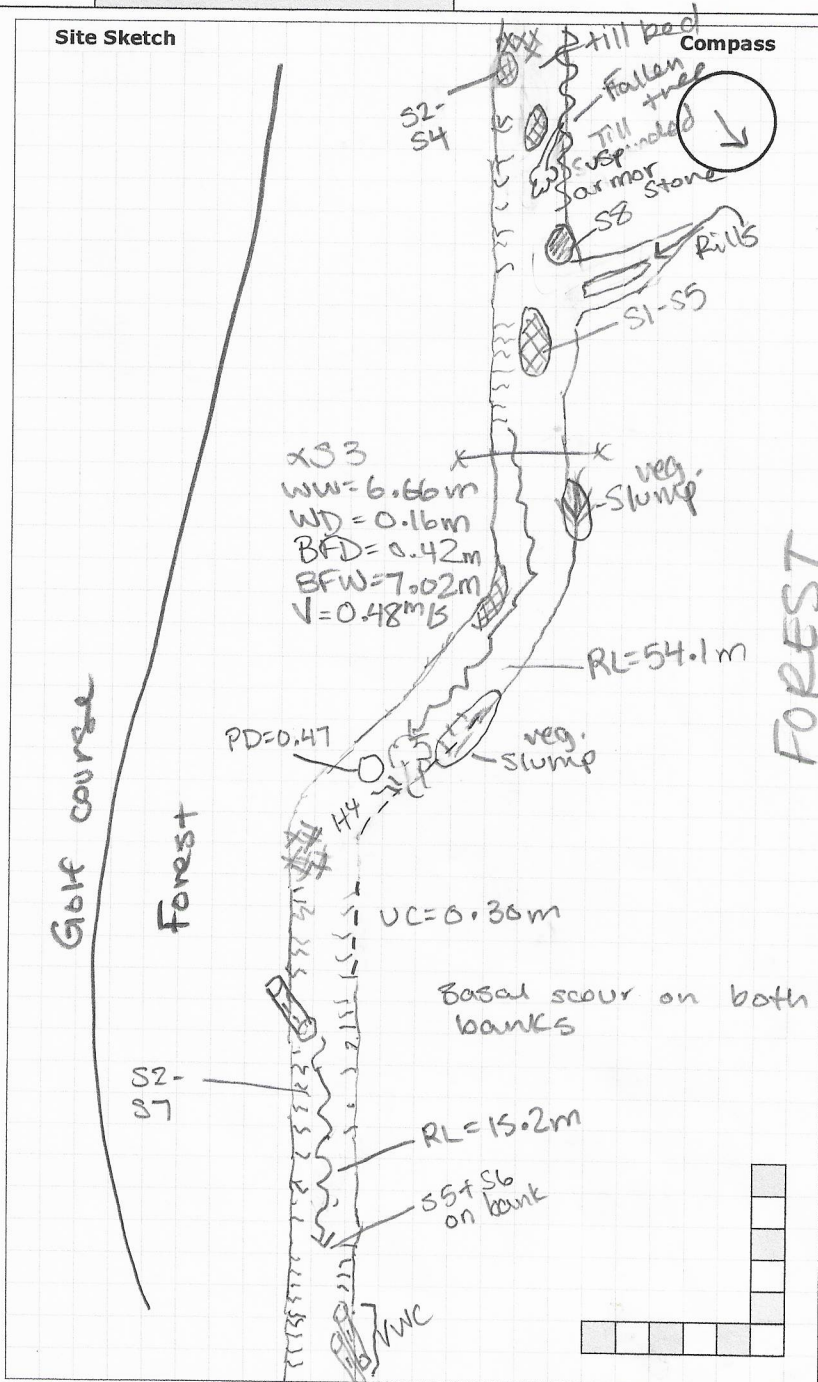 Site Sketch
Compass
till bed
Fallen
tree
Till
suspended
armor
stone
S2-
S4
S8
Rills
S1-S5
XS3
WW=6.66m
WD=0.16m
BFD=0.42m
BFW=7.02m
V=0.48m/s
veg.
slump
RL=54.1m
FOREST
PD=0.47
veg.
slump
H4
Golf course
Forest
UC=0.30m
Basal scour on both
banks
S2-
S7
RL=15.2m
S5+S6
on bank
VWC